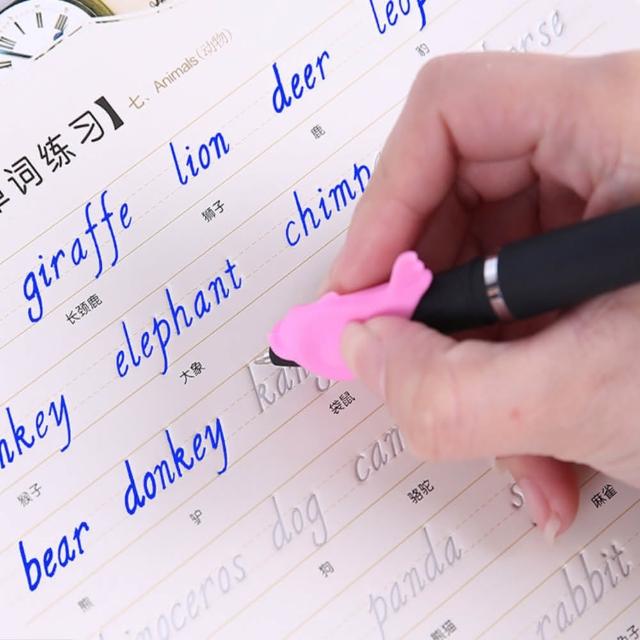 词练习】七、Animals(动物)
giraffe lion deer leop
长颈鹿 狮子 鹿 豹
nkey elephant chimp orse
猴子 大象
bear donkey kang
熊 驴 袋鼠
inoceros dog cam
狗 骆驼
panda s
熊猫 麻雀
rabbit